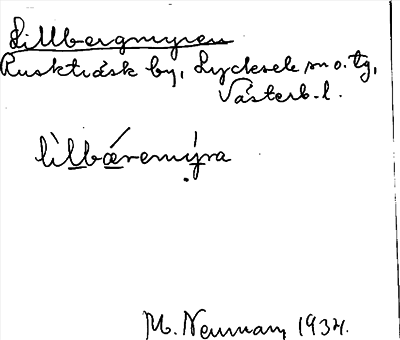 Lillbergmyren
Ruskträsk by, Lycksele sn o. tg,
Västerb. l.
lìlbǽremýra
M. Neuman, 1934.